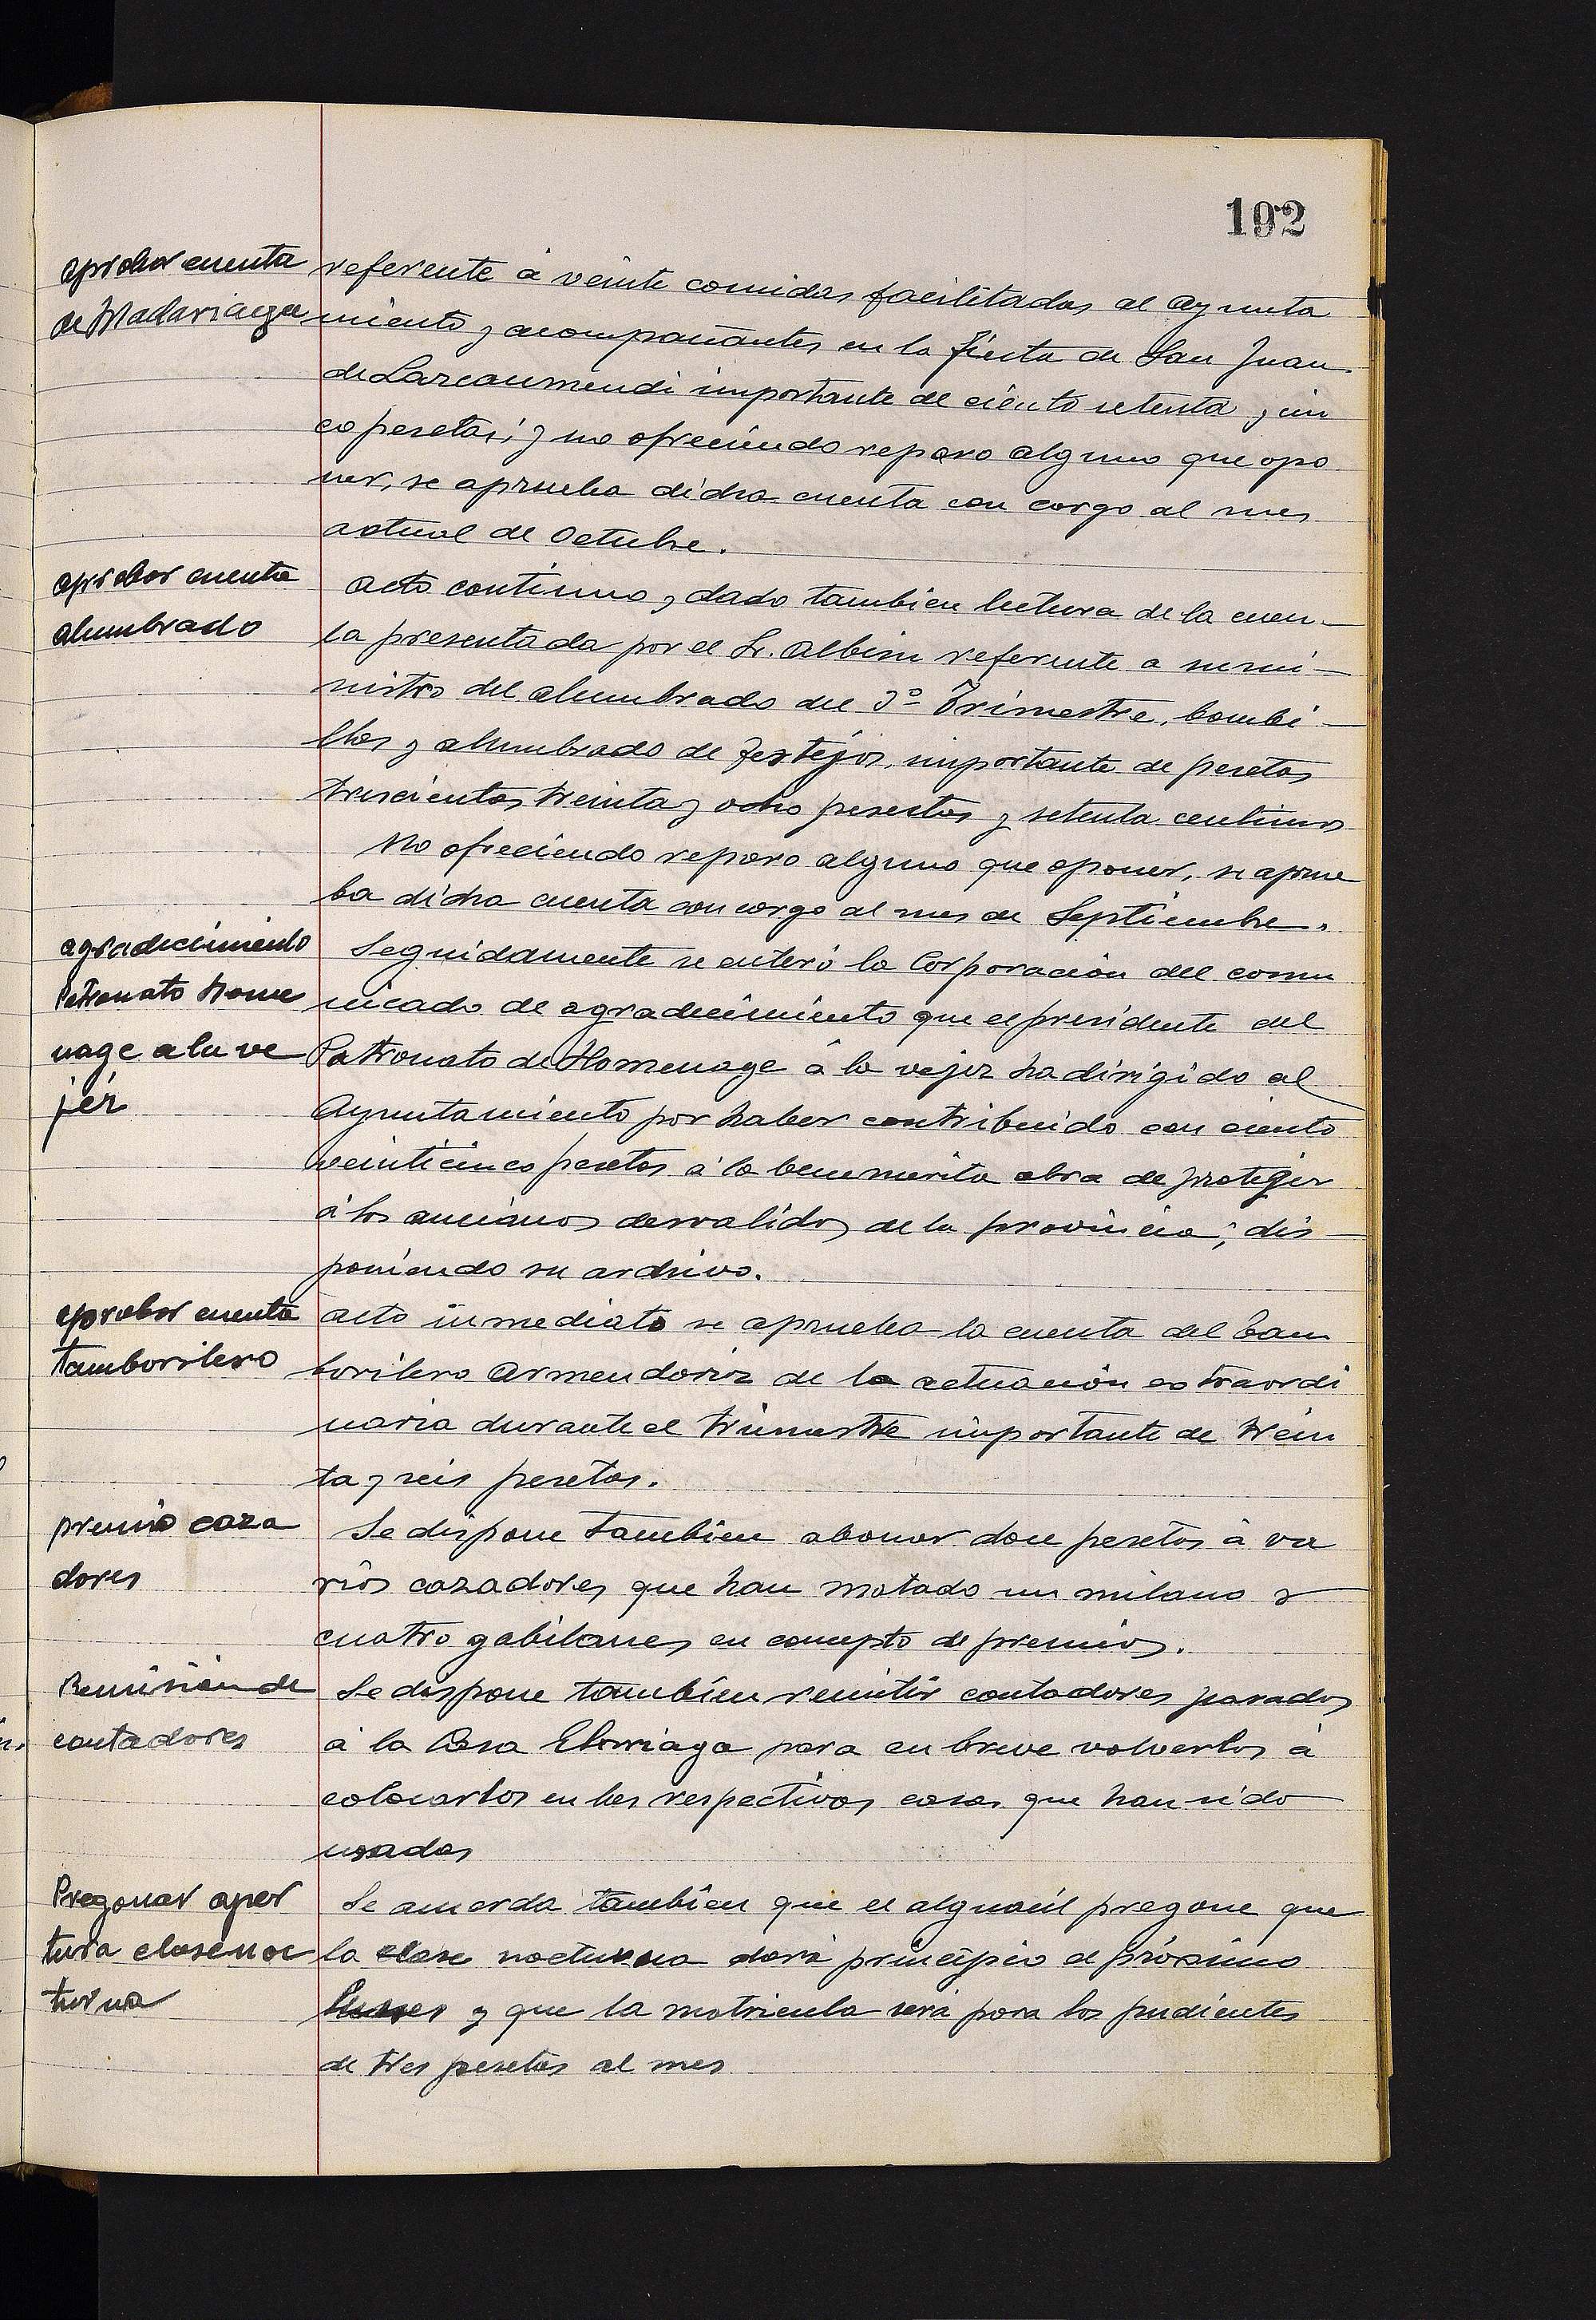 192
aprobar cuenta
de Madariaga
referente á veinte comidas facilitadas al Ayunta
miento y acompañantes en la fiesta de San Juan
de Lazcaumendi importante de ciento setenta y cin
co pesetas; y no ofreciendo reparo alguno que opo
ner, se aprueba dicha cuenta con cargo al mes
actual de Octubre.
aprobar cuenta
alumbrado
Acto continuo y dado tambien lectura de la cuen-
ta presentada por el Sr. Albisu referente a sumi-
nistro del alumbrado del 3º Trimestre, bombi-
llas y alumbrado de festejos, importante de pesetas
trescientas treinta y ocho pesestas y setenta centimos
No ofreciendo reparo alguno que oponer, se aprue
ba dicha cuenta con cargo al mes de Septiembre.
agradecimiento
Patronato home
nage a la ve
jéz
Seguidamente se enteró la Corporación del comu
nicado de agradecimiento que el presidente del
Patronato de Homenage á la vejez ha dirigido al
Ayuntamiento por haber contribuido con ciento
veinticinco pesetas á la benemerita obra de proteger
á los ancianos desvalidos de la provincia; dis-
poniendo su archivo.
aprobar cuenta
tamborilero
Acto inmediato se aprueba la cuenta del tam
borilero Armendariz de la actuación extraordi
naria durante el trimestre importante de trein
ta y seis pesetas.
premio caza
dores
Se dispone tambien abonar doce pesetas á va
rios cazadores que han matado un milano y
cuatro gabilanes en concepto de premios.
Remisión de
contadores
Se dispone tambien remitir contadores parados
á la Casa Elorriaga para en breve volverlos á
colocarlos en las respectivas casas que han sido
usadas
Pregonar aper
tura clase noc
turna
Se acuerda tambien que el alguacil pregone que
la clase nocturna dará principio el próximo
Lunes y que la matricula será para los pudientes
de tres pesetas al mes